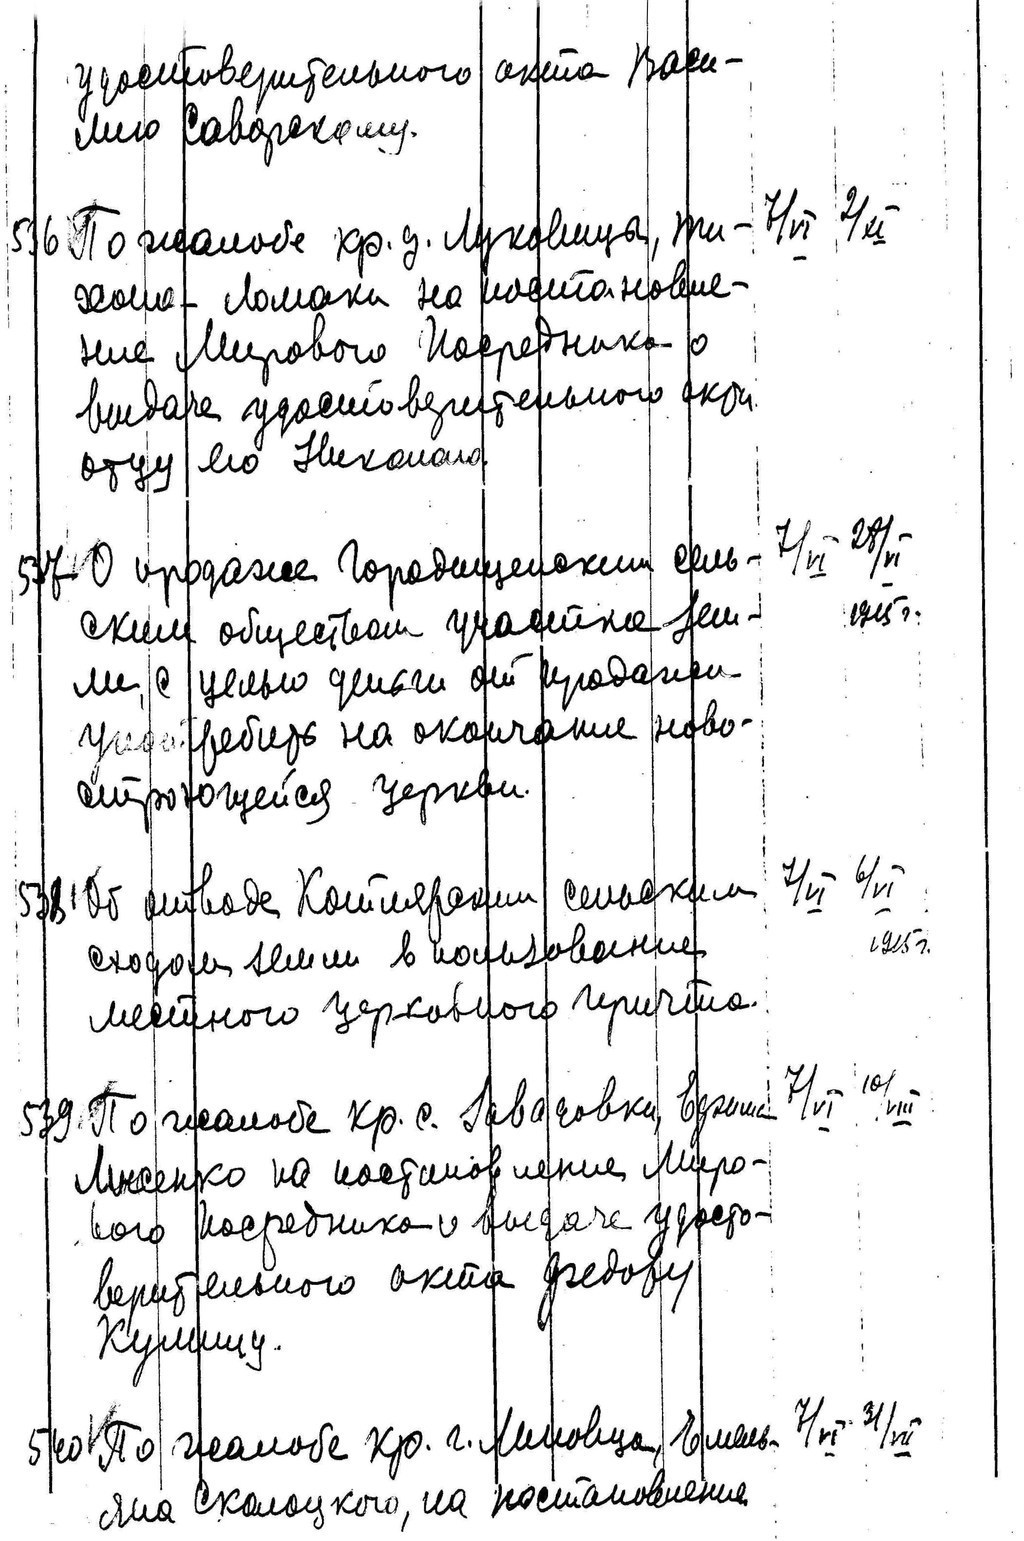 удостоверительного акта Васи-
лию Саварскому.
536 По жалобе кр. д. Луковица, Ти- 7/VI 2/XI
хона Ломаки на постановле-
ние Мирового Посредника о
выдаче удостоверительного акта
отцу его Николаю.
537 О продаже Городищенским сель- 7/VI 28/VI
ским обществом участка зем- 1915 г.
ли, с целью деньги от продажи
употребить на окончание ново-
строющейся церкви.
538 Об отводе Котлярским сельским 7/VI 6/VI
сходом земли в пользование 1915 г.
местного церковного причта.
539 По жалобе кр. с. Завадовки, 7/VI 10/VIII
Лысенко на постановление Миро-
вого Посредника о выдаче удосто-
верительного акта Федору
Кулишу.
540 По жалобе кр. Липовца, Емель- 7/VI 31/VII
яна Сколоцкого, на постановление